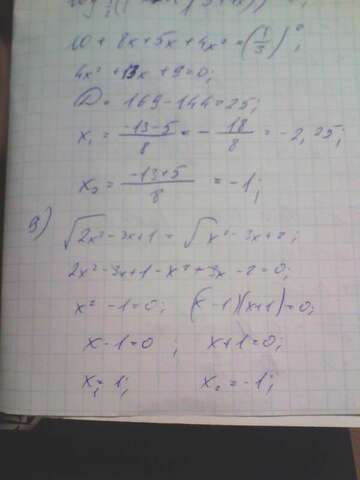 10 + 8x + 5x + 4x² = (1/3)⁰;
4x² + 13x + 9 = 0;
D = 169 - 144 = 25;
x₁ = (-13-5)/8 = -18/8 = -2,25;
x₂ = (-13+5)/8 = -1;
в)
√2x²-3x+1 = √x²-3x+2;
2x²-3x+1-x²+3x-2=0;
x²-1=0; (x-1)(x+1)=0;
x-1=0; x+1=0;
x₁=1; x₂=-1;